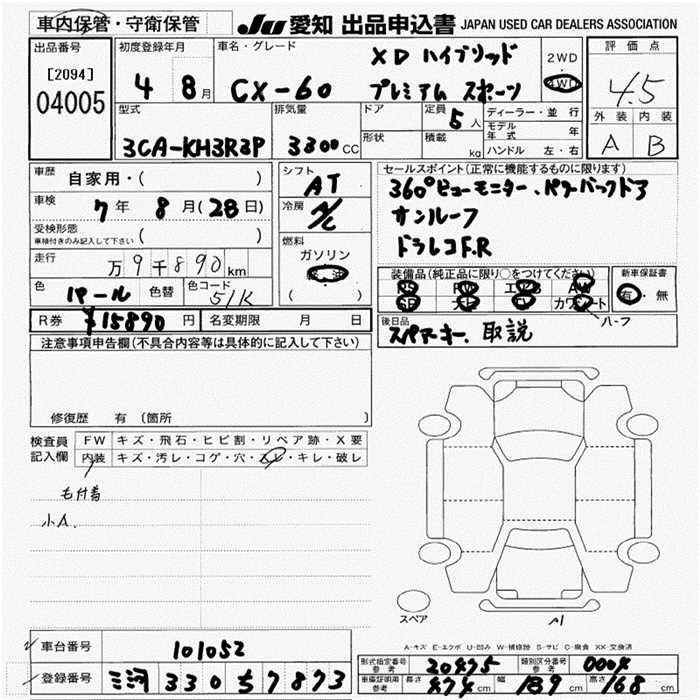 車内保管・守衛保管
JU 愛知 出品申込書 JAPAN USED CAR DEALERS ASSOCIATION
出品番号
[2094]
04005
初度登録年月
4 8月
車名・グレード
CX-60
XD ハイブリッド
プレミアム スポーツ
2WD
4WD
評価点
4.5
外装 内装
A B
型式
3CA-KH3R3P
排気量
3300CC
ドア
形状
定員 5人
積載 kg
ディーラー・並行
モデル年式 年
ハンドル 左・右
車歴 自家用・( )
車検 7年 8月(28日)
受検形態
車検付きのみ記入して下さい ( )
走行 万9千890km
色 パール 色替 色コード 51K
シフト
AT
冷房
A/C
燃料
ガソリン
軽油
( )
セールスポイント(正常に機能するものに限ります)
360°ビューモニター、パワーバックドア
サンルーフ
ドラレコF.R
装備品(純正品に限り○をつけてください)
PS PW エアB AW
SR ナビ TV カワシート
ハーフ
新車保証書
有・無
R券 ¥15890円 名変期限 月 日
後日品
スペアキー、取説
注意事項申告欄(不具合内容等は具体的に記入して下さい)
修復歴 有 (箇所
検査員記入欄
FW キズ・飛石・ヒビ割・リペア跡・X要
内装 キズ・汚レ・コゲ・穴・スレ・キレ・破レ
毛付着
小A.
スペア
A1
A-キズ E-エクボ U-凹み W-補修跡 S-サビ C-腐食 XX-交換済
車台番号 101052
登録番号 三河 330 ち 7873
型式指定番号参考 20475 類別区分番号参考 0004
車庫証明用参考 長さ 474cm 幅 189cm 高さ 168cm